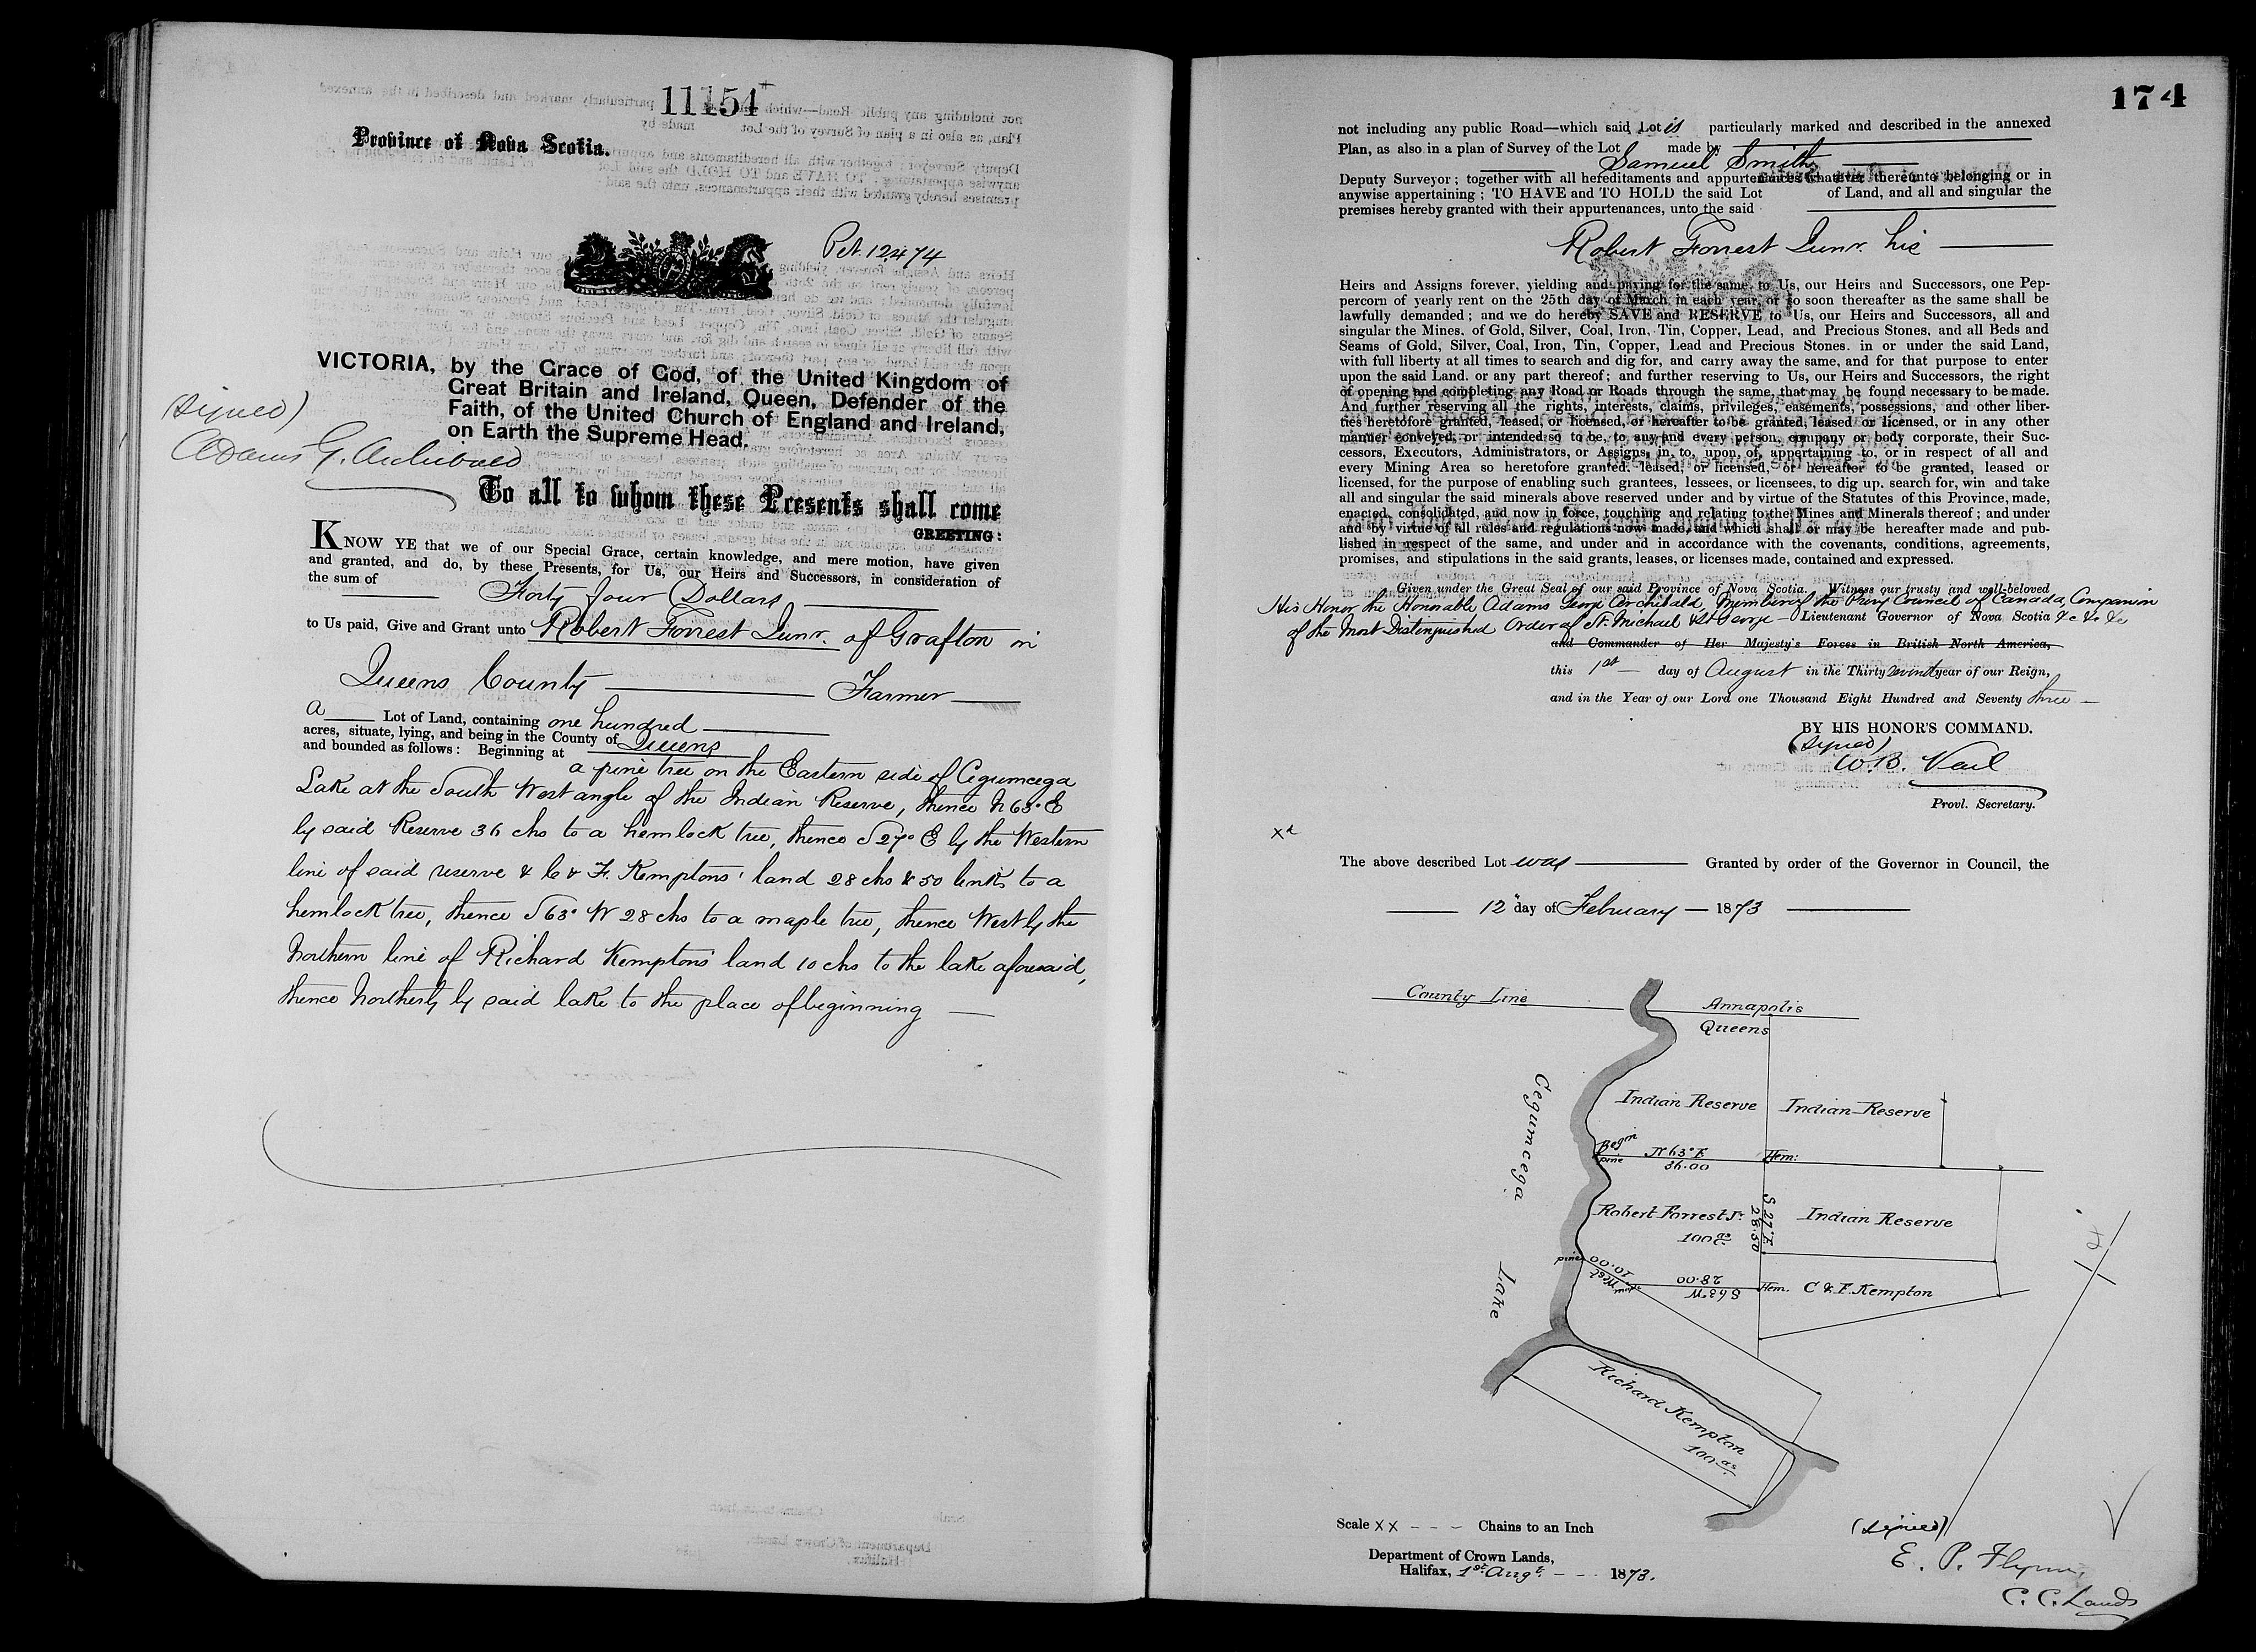 11154
Province of Nova Scotia.
Pet. 12474
VICTORIA, by the Grace of God, of the United Kingdom of
Great Britain and Ireland, Queen, Defender of the
Faith, of the United Church of England and Ireland,
on Earth the Supreme Head.
(Signed)
Adams G. Archibald
To all to whom these Presents shall come
GREETING:
KNOW YE that we of our Special Grace, certain knowledge, and mere motion, have given
and granted, and do, by these Presents, for Us, our Heirs and Successors, in consideration of
the sum of Forty four Dollars
to Us paid, Give and Grant unto Robert Forrest Junr. of Grafton in
Queens County Farmer
a Lot of Land, containing one hundred
acres, situate, lying, and being in the County of Queens
and bounded as follows: Beginning at
a pine tree on the Eastern side of Cegumcega
Lake at the South West angle of the Indian Reserve, thence N 63° E
by said Reserve 36 chs to a hemlock tree, thence S 27° E by the Western
line of said reserve & C & F. Kemptons' land 28 chs & 50 links to a
hemlock tree, thence S 63° W 28 chs to a maple tree, thence West by the
Northern line of Richard Kemptons land 10 chs to the lake aforesaid,
thence Northerly by said lake to the place of beginning
174
not including any public Road—which said Lot is particularly marked and described in the annexed
Plan, as also in a plan of Survey of the Lot made by
Samuel Smith
Deputy Surveyor; together with all hereditaments and appurtenances whatever thereunto belonging or in
anywise appertaining; TO HAVE and TO HOLD the said Lot of Land, and all and singular the
premises hereby granted with their appurtenances, unto the said
Robert Forrest Junr. his
Heirs and Assigns forever, yielding and paying for the same, to Us, our Heirs and Successors, one Pep-
percorn of yearly rent on the 25th day of March, in each year, or so soon thereafter as the same shall be
lawfully demanded; and we do hereby SAVE and RESERVE to Us, our Heirs and Successors, all and
singular the Mines. of Gold, Silver, Coal, Iron, Tin, Copper, Lead, and Precious Stones, and all Beds and
Seams of Gold, Silver, Coal, Iron, Tin, Copper, Lead and Precious Stones. in or under the said Land,
with full liberty at all times to search and dig for, and carry away the same, and for that purpose to enter
upon the said Land. or any part thereof; and further reserving to Us, our Heirs and Successors, the right
of opening and completing any Road or Roads through the same, that may be found necessary to be made.
And further reserving all the rights, interests, claims, privileges, easements, possessions, and other liber-
ties heretofore granted, leased, or licensed, or hereafter to be granted, leased or licensed, or in any other
manner conveyed, or intended so to be, to any and every person, company or body corporate, their Suc-
cessors, Executors, Administrators, or Assigns, in, to, upon, of, appertaining to, or in respect of all and
every Mining Area so heretofore granted. leased, or licensed, or hereafter to be granted, leased or
licensed, for the purpose of enabling such grantees, lessees, or licensees, to dig up. search for, win and take
all and singular the said minerals above reserved under and by virtue of the Statutes of this Province, made,
enacted, consolidated, and now in force, touching and relating to the Mines and Minerals thereof; and under
and by virtue of all rules and regulations now made, and which shall or may be hereafter made and pub-
lished in respect of the same, and under and in accordance with the covenants, conditions, agreements,
promises, and stipulations in the said grants, leases, or licenses made, contained and expressed.
Given under the Great Seal of our said Province of Nova Scotia. Witness our trusty and well-beloved
His Honor the Honorable Adams George Archibald, Member of the Privy Council of Canada, Companion
of the Most Distinguished Order of St. Michael & St George – Lieutenant Governor of Nova Scotia &c &c &c
and Commander of Her Majesty's Forces in British North America,
this 1st day of August in the Thirty seventh year of our Reign,
and in the Year of our Lord one Thousand Eight Hundred and Seventy three
BY HIS HONOR'S COMMAND.
(Signed)
W. B. Vail
Provl. Secretary.
Xd
The above described Lot was Granted by order of the Governor in Council, the
12" day of February 1873
County Line
Annapolis
Queens
Indian Reserve
Indian Reserve
Cegumcega
Lake
Begin
pine
N 63° E
36.00
Hem:
Robert Forrest Jr.
100 as
S 27° E
28.50
Indian Reserve
pine
10.00
West
map
28.00
S 63° W
Hem.
C & F. Kempton
Richard Kempton
100 as
Scale XX Chains to an Inch
Department of Crown Lands,
Halifax, 1st Augt. 1873.
(Signed)
E. P. Flynn,
C. C. Lands